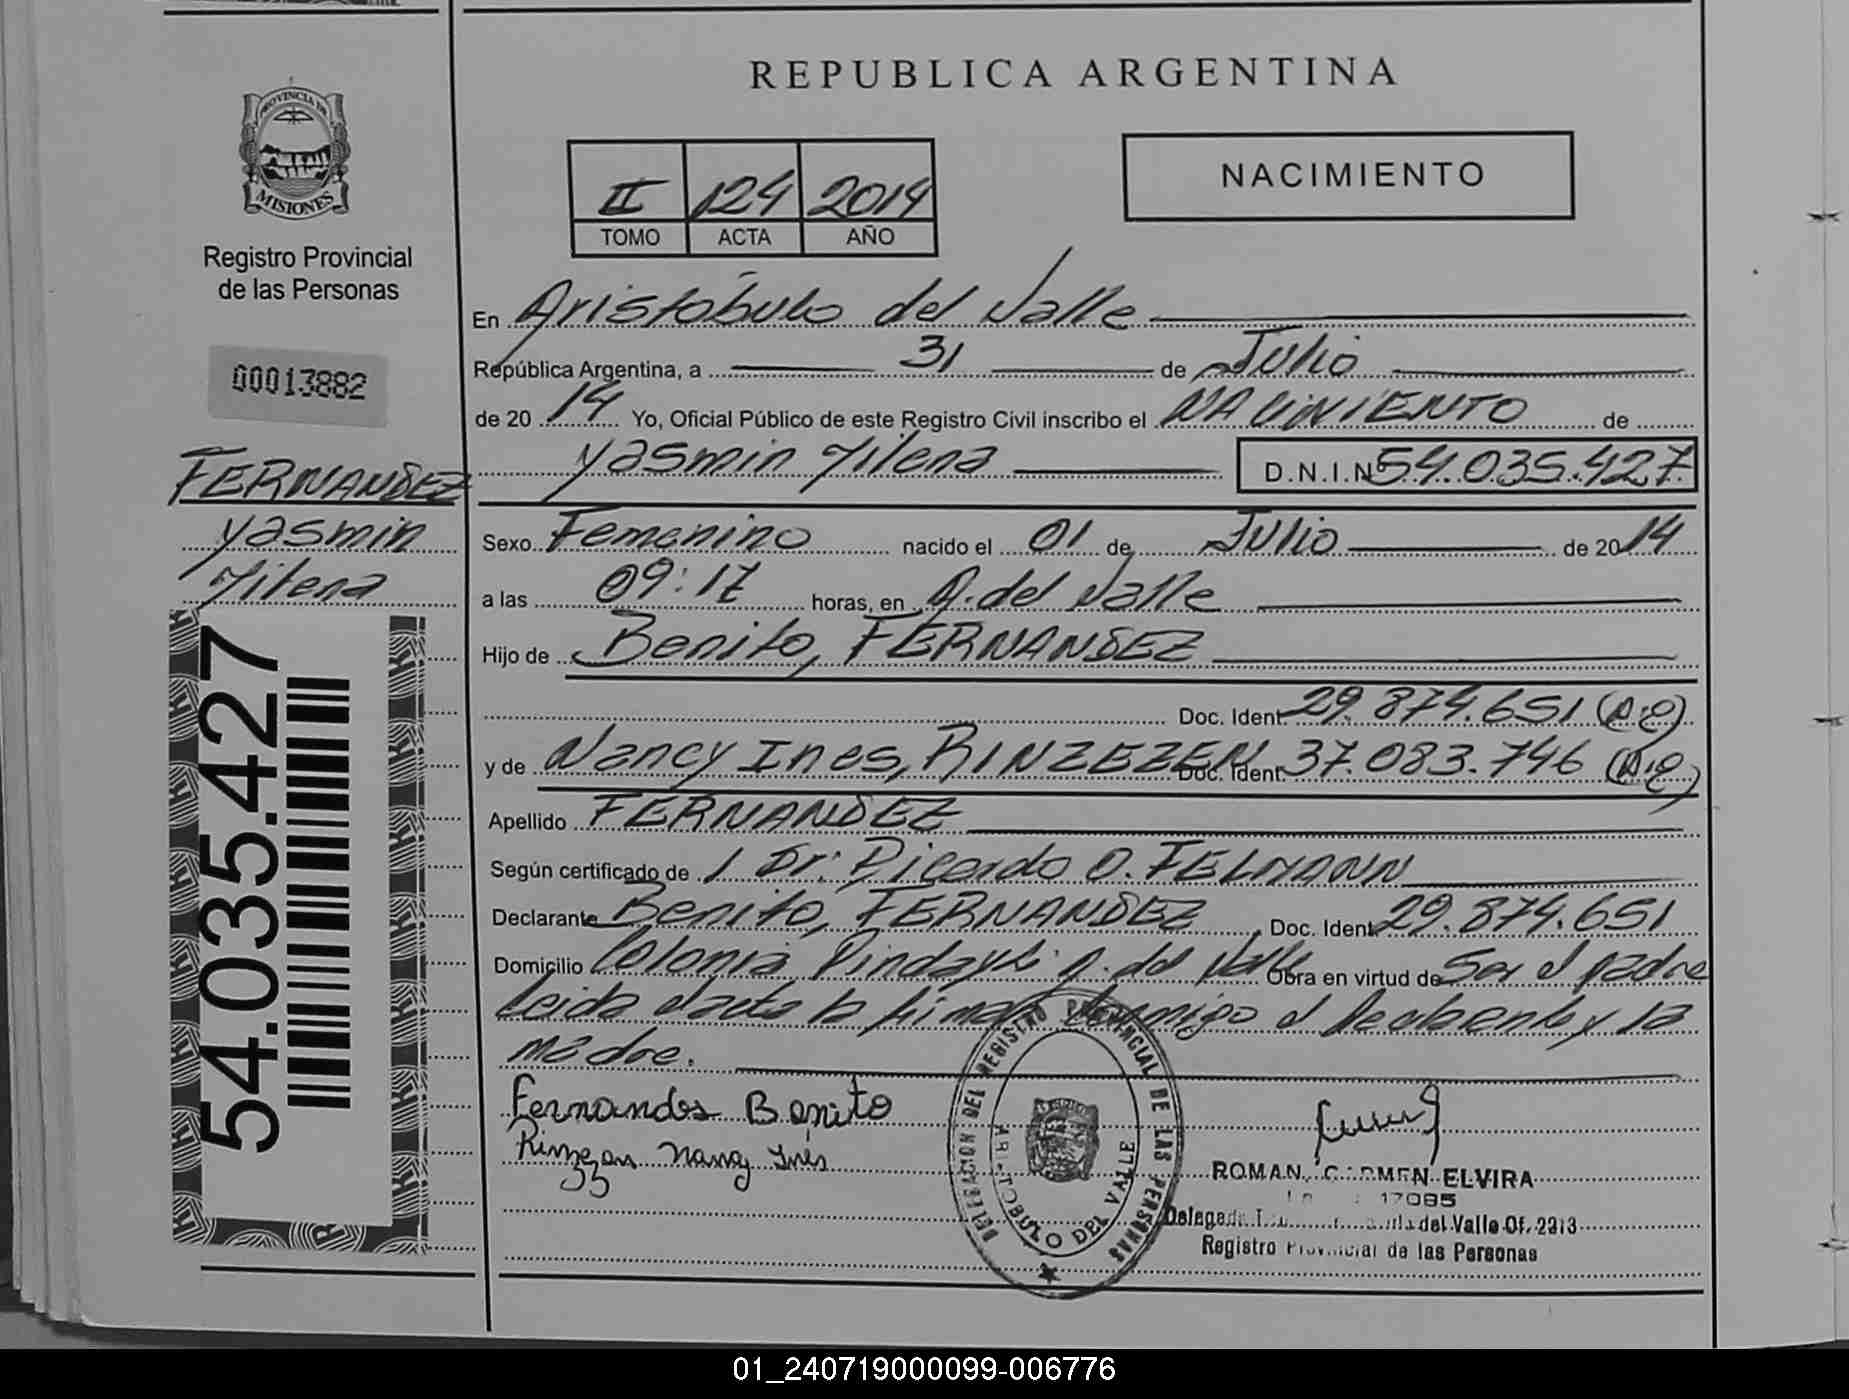 REPUBLICA ARGENTINA
PROVINCIA DE
MISIONES
Registro Provincial
de las Personas
00013882
FERNANDEZ
Yasmin
Yilena
54.035.427
II 124 2014
TOMO ACTA AÑO
NACIMIENTO
En Aristóbulo del Valle
República Argentina, a 31 de Julio
de 2014 Yo, Oficial Público de este Registro Civil inscribo el NACIMIENTO de
Yasmin Yilena D.N.I.N 54.035.427
Sexo Femenino nacido el 01 de Julio de 2014
a las 09:17 horas, en A. del Valle
Hijo de Benito, FERNANDEZ
Doc. Ident 29.874.651 (A.E)
y de Nancy Ines, RINZEZEN Doc. Ident 37.083.746 (A.E)
Apellido FERNANDEZ
Según certificado de 1 Dr: Ricardo O. FELMANN
Declarante Benito, FERNANDEZ Doc. Ident 29.874.651
Domicilio Colonia Pindayti A. del Valle Obra en virtud de Ser el padre
Leida el acta la firman conmigo el y la
madre.
Fernandes Benito
Nancy Inés
DELEGACION DEL REGISTRO PROVINCIAL DE LAS PERSONAS
ARISTOBULO DEL VALLE
ROMAN, CARMEN ELVIRA
17085
del Valle Of. 2213
Registro Provincial de las Personas
01_240719000099-006776